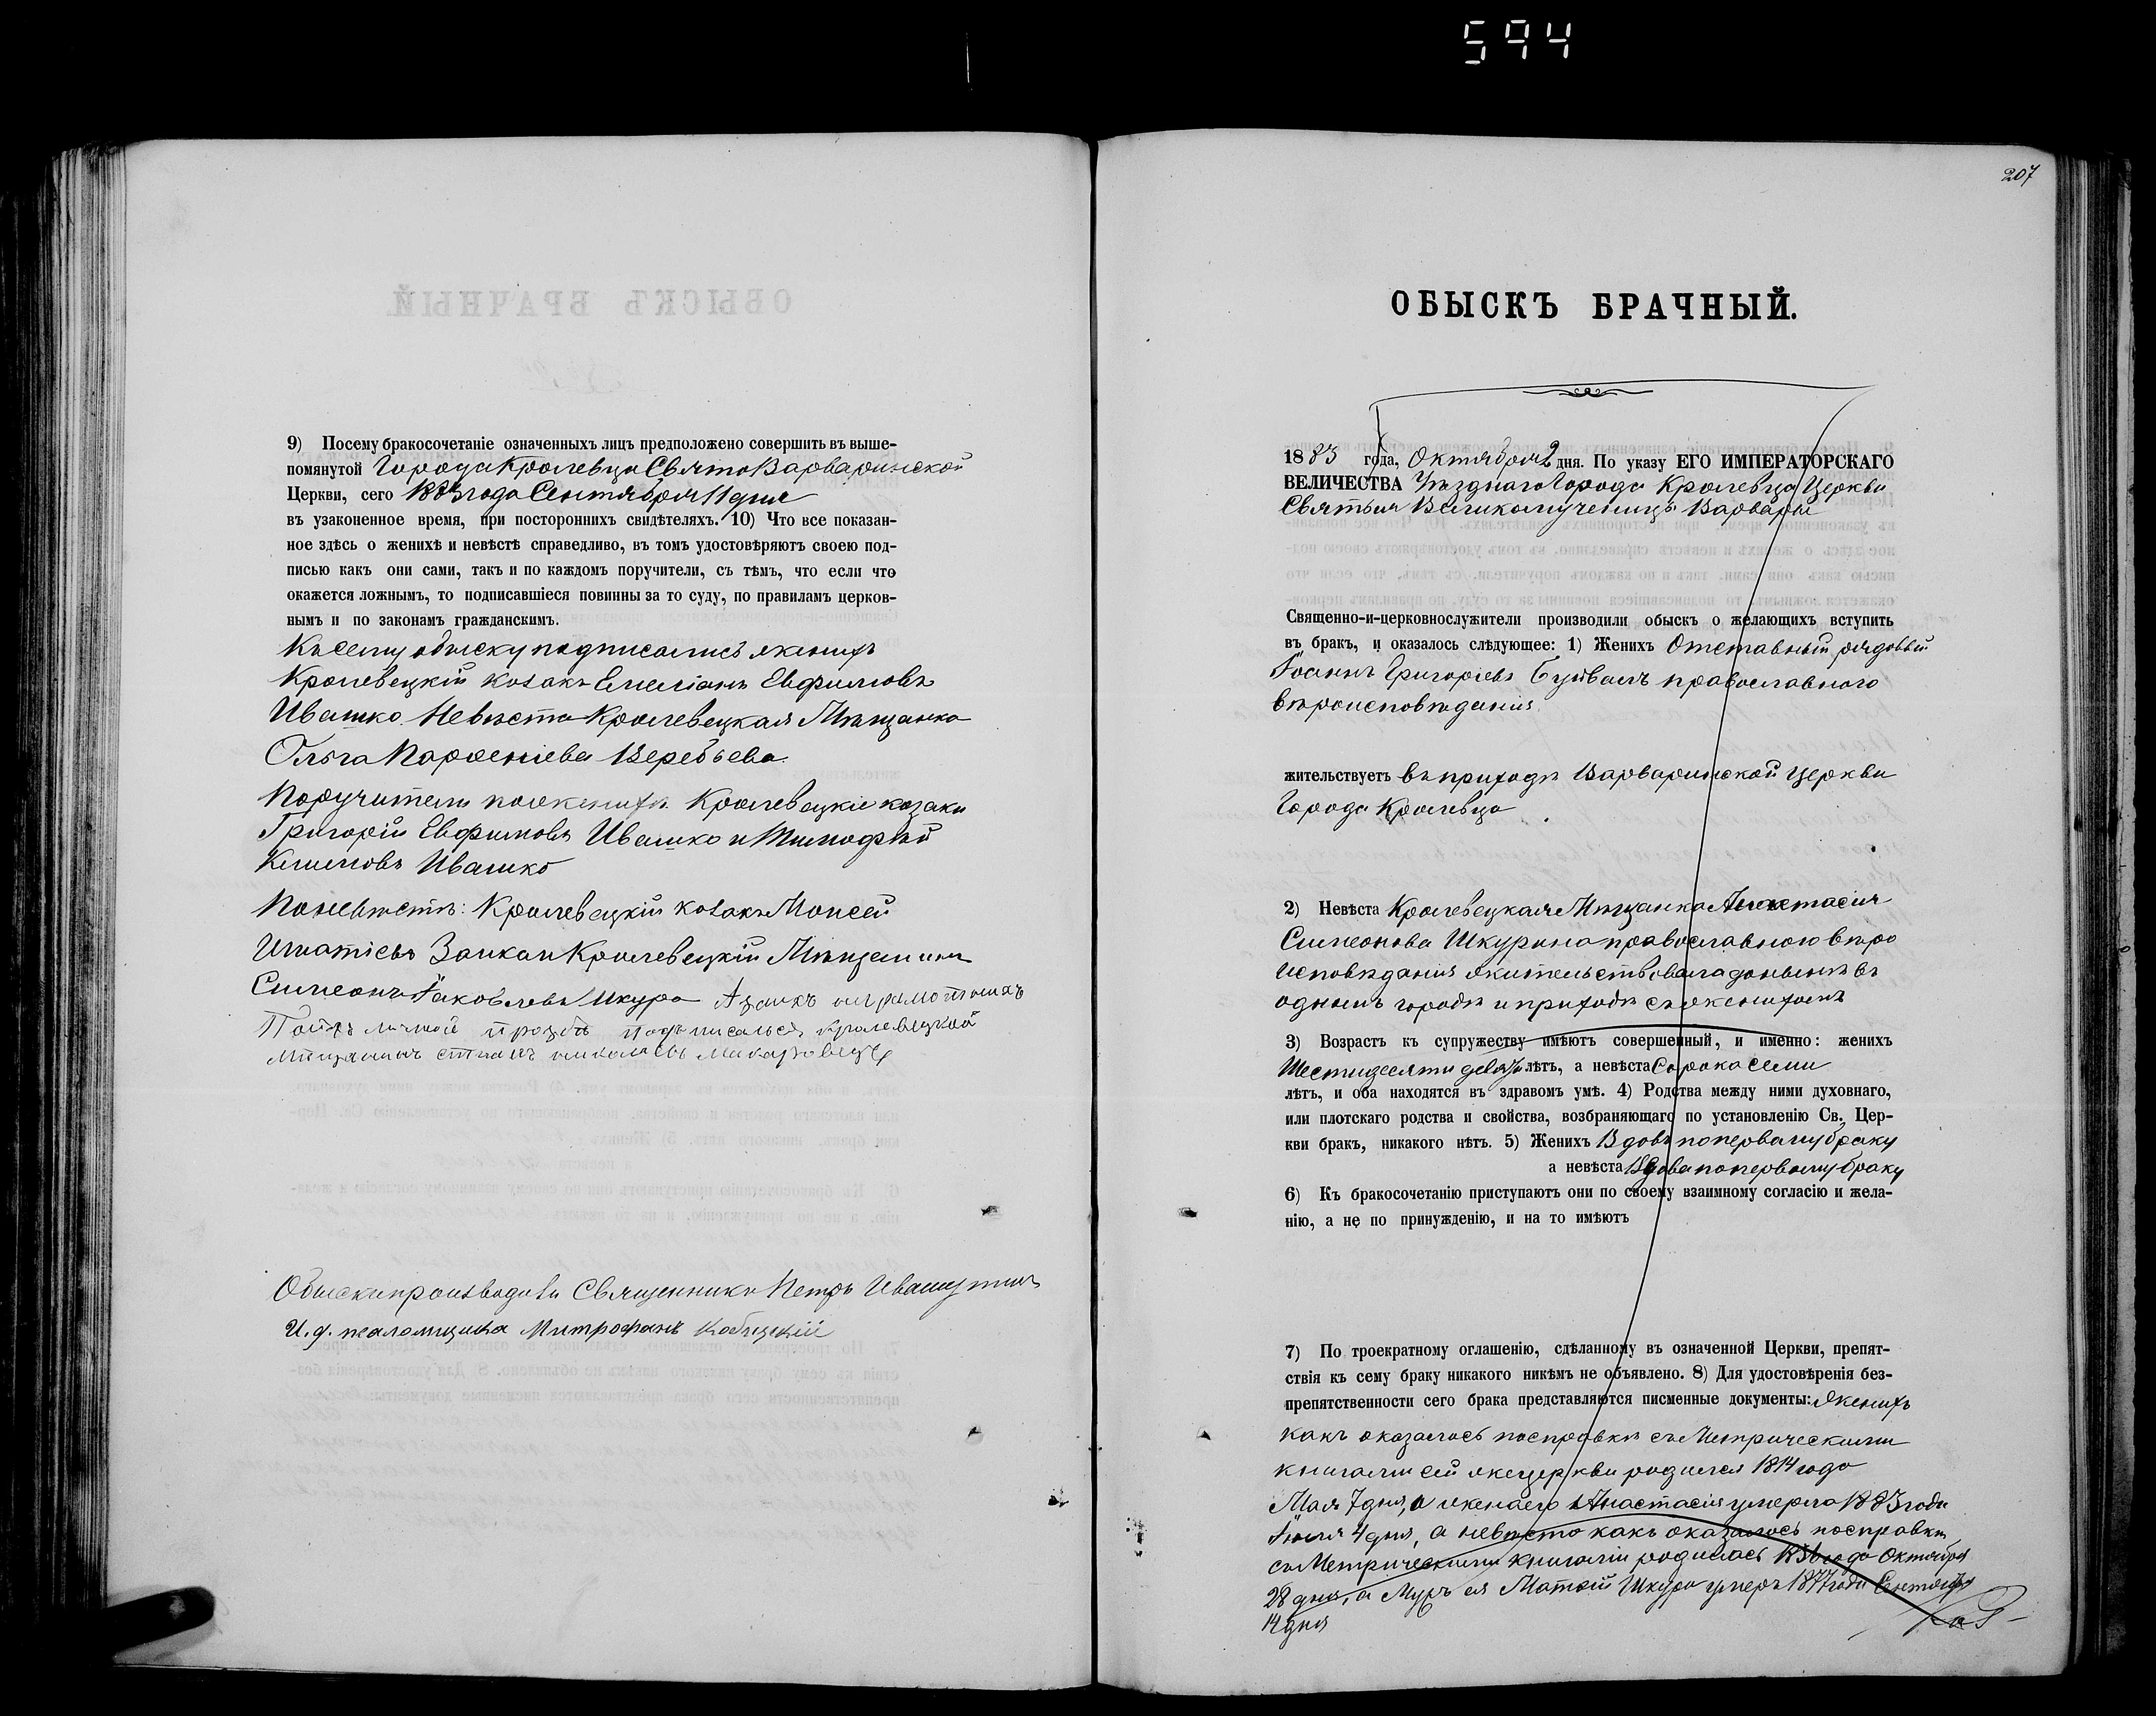 594
9) Посему бракосочетаніе означенныхъ лицъ предположено совершить въ выше-
помянутой Города Кролевца СвятоВарваринской
Церкви, сего 1883 года Сентября 11 дня
въ узаконенное время, при постороннихъ свидѣтеляхъ. 10) Что все показан-
ное здѣсь о женихѣ и невѣстѣ справедливо, въ томъ удостовѣряютъ своею под-
писью какъ они сами, такъ и по каждомъ поручители, съ тѣмъ, что если что
окажется ложнымъ, то подписавшіеся повинны за то суду, по правиламъ церков-
нымъ и по законамъ гражданскимъ.
Къ сему обыску подписались женихъ
Кролевецкій козакъ Емеліанъ Евфимовъ
Ивашко. Невѣста Кролевецкая Мѣщанка
Ольга Парѳеніева Веребьева.
Поручители по женихѣ Кролевецкіе козаки
Григорій Евфимовъ Ивашко и Тимофѣй
Климовъ Ивашко
По невѣстѣ: Кролевецкій козакъ Моисей
Игнатіевъ Заика и Кролевецкій Мѣщанинъ
Симеонъ Яковлевъ Шкура
подписалься кролевецкой
мищанинъ
Обыскъ производили Священникъ Петръ Ивашутичъ
И. д. псаломщика Митрофанъ Кобицкій
207
ОБЫСКЪ БРАЧНЫЙ.
1883 года, Октября 2 дня. По указу ЕГО ИМПЕРАТОРСКАГО
ВЕЛИЧЕСТВА Уѣзднаго Города Кролевца Церкви
Святыя Великомученицы Варвары
Священно-и-церковнослужители производили обыскъ о желающихъ вступить
въ бракъ, и оказалось слѣдующее: 1) Женихъ Отставный рядовый
Іоаннъ Григоріевъ Буйвалъ православнаго
вѣроисповѣданія
жительствуетъ въ приходѣ Варваринской Церкви
Города Кролевца
2) Невѣста Кролевецкая Мѣщанка Анастасія
Симеонова Шкурина православного вѣро
исповѣданія жительствовала донынѣ въ
одномъ городѣ и приходѣ съ женихомъ
3) Возрастъ къ супружеству имѣютъ совершенный, и именно: женихъ
Шестидесяти девяти лѣтъ, а невѣста Сорока семи
лѣтъ, и оба находятся въ здравомъ умѣ. 4) Родства между ними духовнаго,
или плотскаго родства и свойства, возбраняющаго по установленію Св. Цер-
кви бракъ, никакого нѣтъ. 5) Женихъ Вдовъ по первому браку
а невѣста Вдова по первому браку
6) Къ бракосочетанію приступаютъ они по своему взаимному согласію и жела-
нію, а не по принужденію, и на то имѣютъ
7) По троекратному оглашенію, сдѣланному въ означенной Церкви, препят-
ствія къ сему браку никакого никѣмъ не объявлено. 8) Для удостовѣренія без-
препятственности сего брака представляются писменные документы: Женихъ
какъ оказалось посправкѣ съ Метрическими
книгами сей же церкви родился 1814 года
Мая 7 дня, а жена его Анастасія умерла 1883 года
Іюля 4 дня, а невѣста какъ оказалось посправкѣ
съ Метрическими книгами родилась 1836 года Октября
28 дня, а Мужъ ея Матѳій Шкура умеръ 1877 года Сентября
14 дня